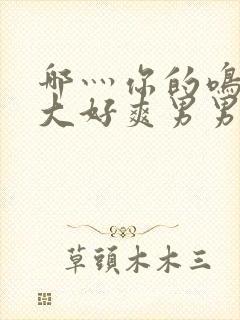 哪灬你的鸣
大好爽男男
草頭木木三